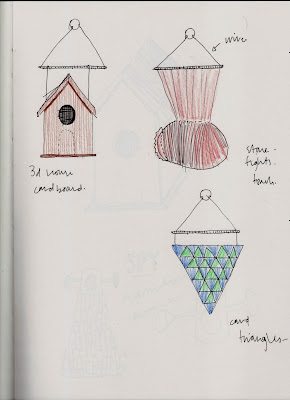 wire
3d house
cardboard.
stone -
tights.
touch.
card
triangles